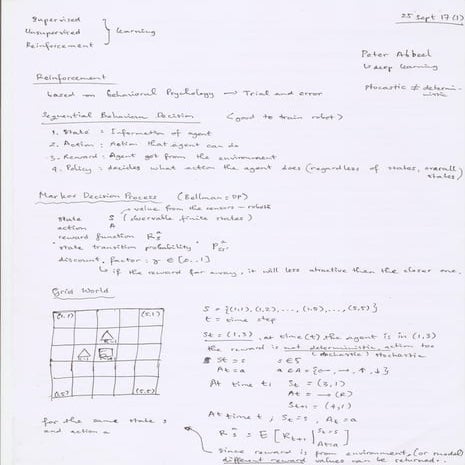 25 Sept 17 (1)
Supervised
Unsupervised } Learning
Reinforcement
Peter Abbeel
↳ deep learning
stochastic ≠ deterministic
Reinforcement
based on behavioral Psychology → Trial and error
Sequential Behavior Decision (good to train robot)
1. State : Information of agent
2. Action : Action that agent can do
3. Reward : Agent got from the environment
4. Policy : decides what action the agent does (regardless of states, overall states)
Markov Decision Process (Bellman = DP)
↳ value from the sensors - robots
state S (observable finite states)
action A
reward function R
"state transition probability" P
discount factor : γ ∈ [0, 1]
↳ if the reward far away, it will less attractive than the closer one.
Grid World
(1,1) (5,1)
R=-1
R=-1
(1,5) (5,5)
S = {(1,1), (1,2), ..., (1,5), ..., (5,5)}
t = time step
St = (1,3), at time (t), the agent is in (1,3)
the reward is not deterministic, action too
(stochastic) stochastic
St = s s ∈ S
At = a a ∈ A = {←, →, ↑, ↓}
At time t, St = (3,1)
At = → (R)
St+1 = (4,1)
At time t, St = s, At = a
R = E [ Rt+1 | St = s, At = a ]
for the same state s
and action a
since reward is from environment, (or model)
different reward values can be returned.